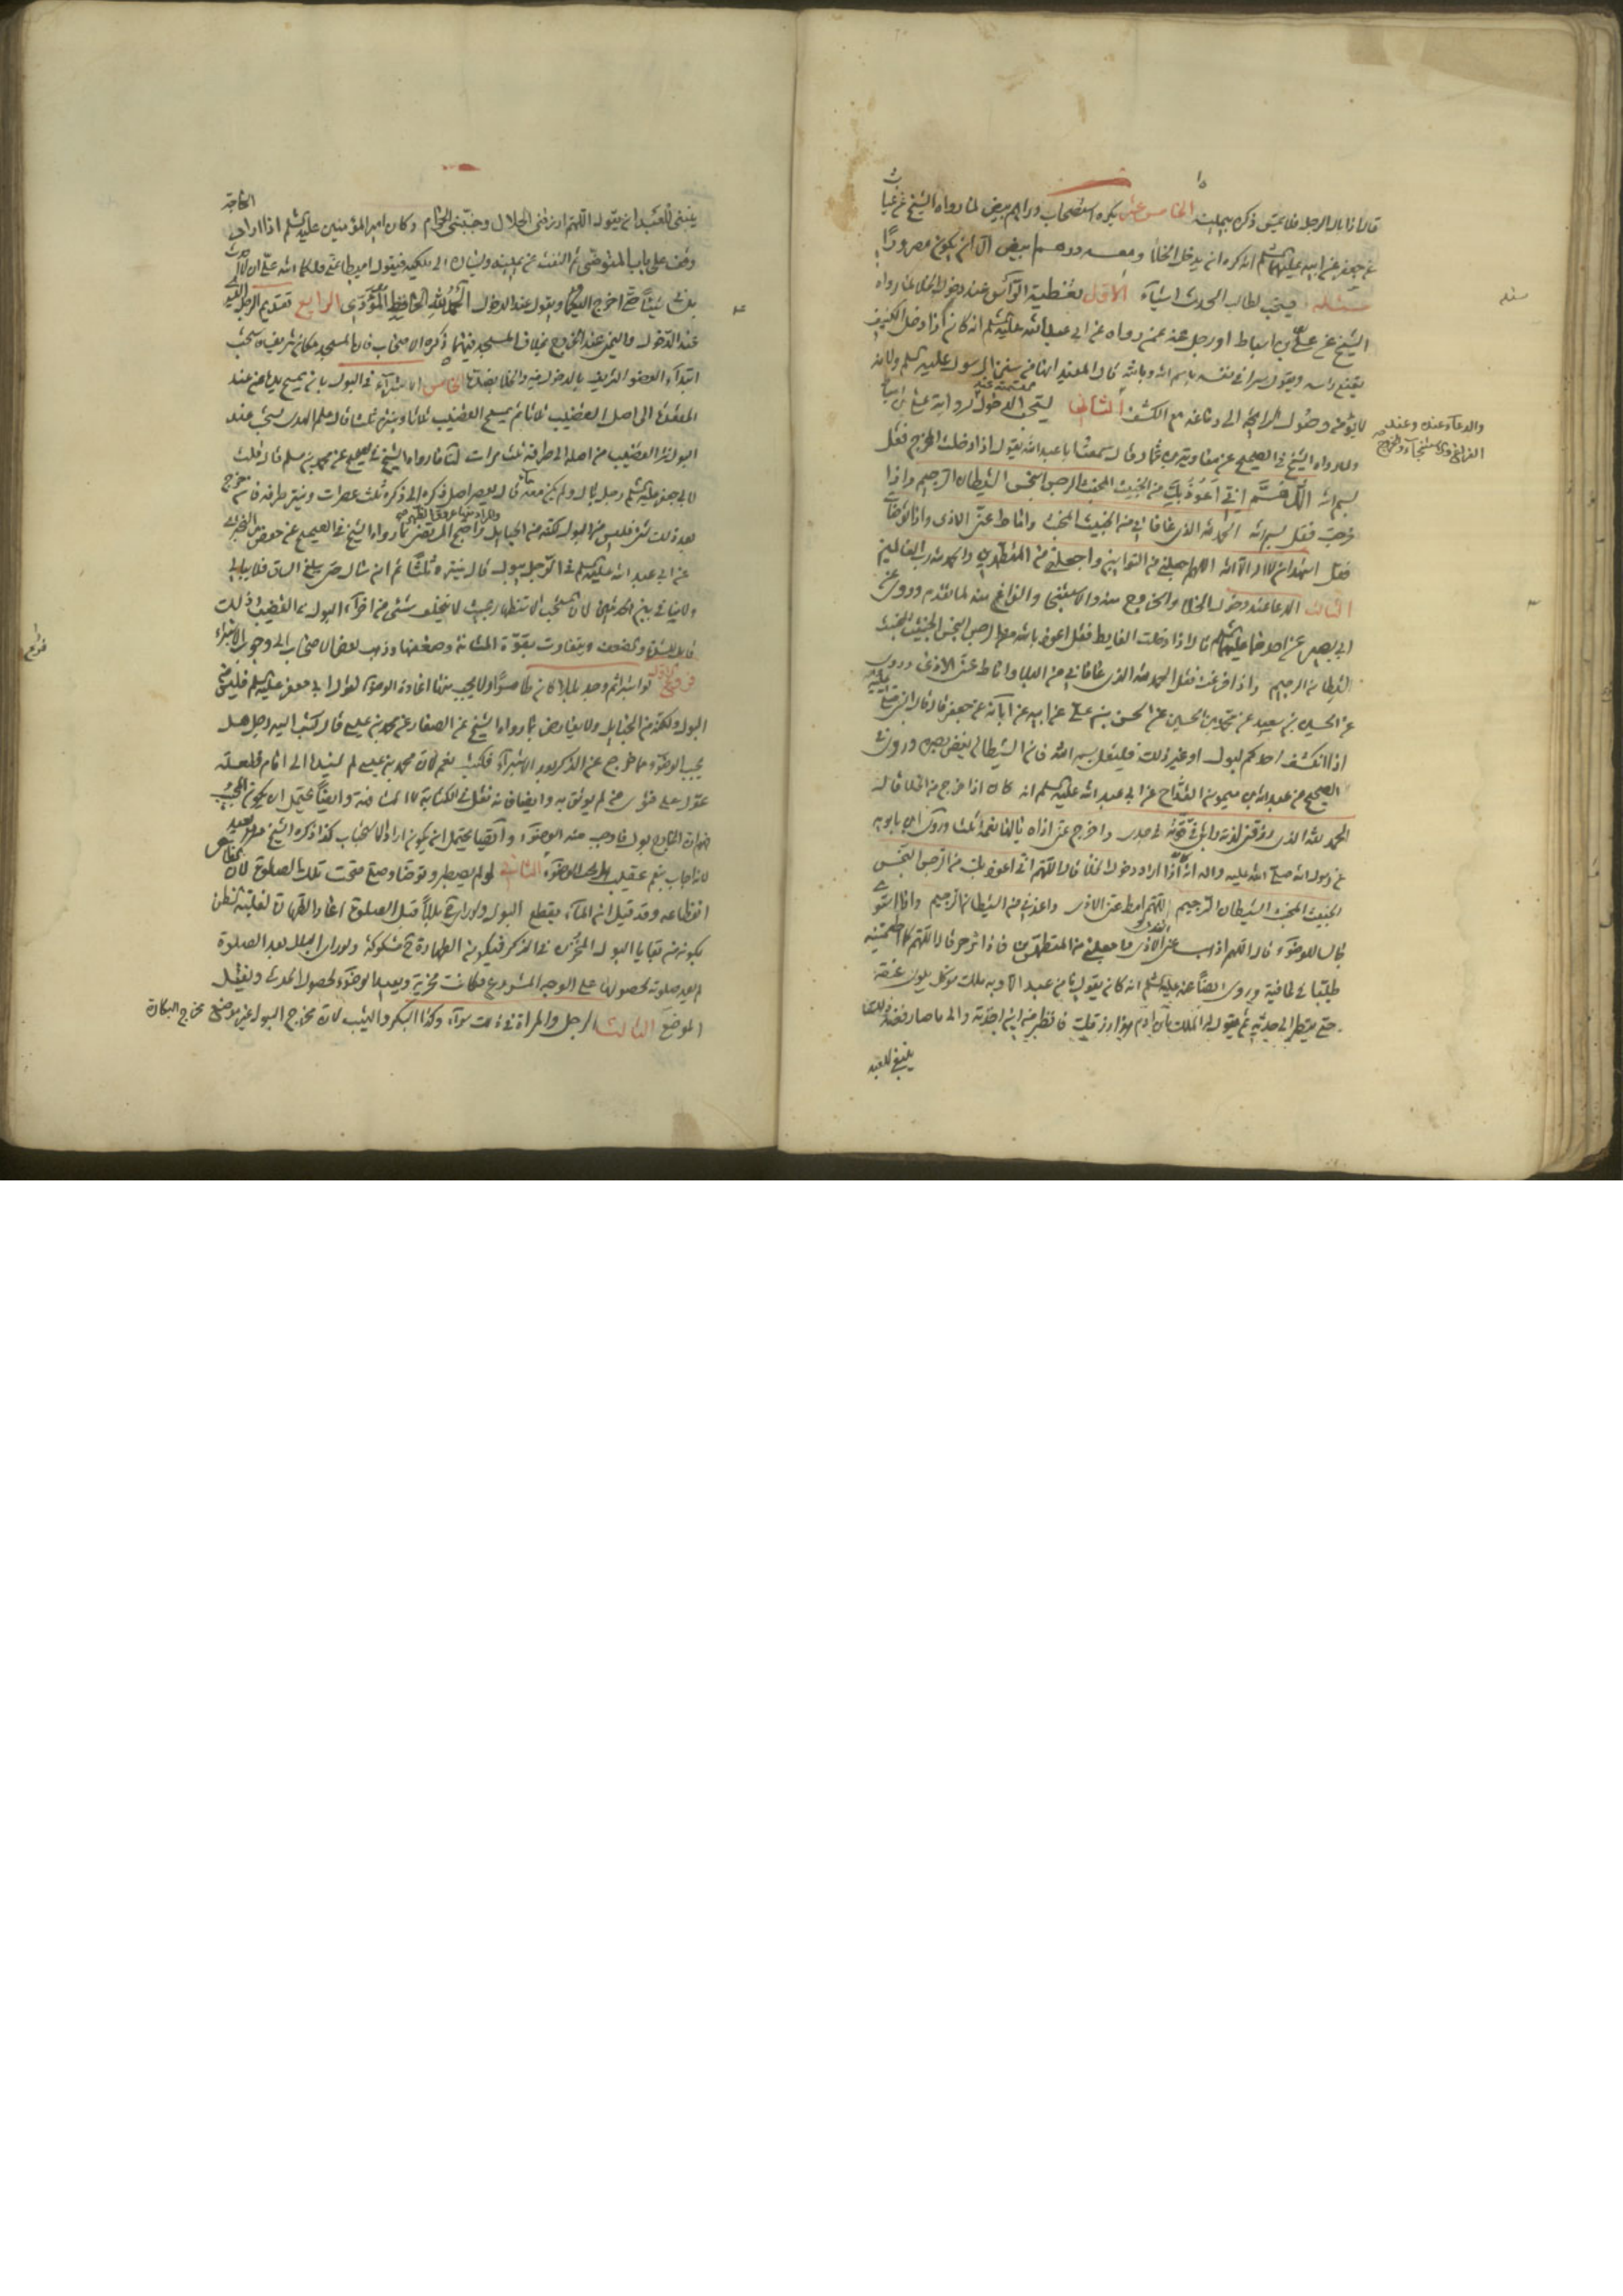 قال اذا بال الرجل فلا يمس ذكره بيمينه الخامس عشر يكره استصحاب دراهم بيض لما رواه الشيخ عن غياث
عن جعفر عن ابيه عليهما السلم انه كره ان يدخل الخلا ومعه درهم ابيض الا ان يكون مصرورا
مسئله ويستحب لطالب الحدث اشياء الاول تغطية الرأس عند دخول الخلا لما رواه
الشيخ عن علي بن اسباط او رجل عنه عمن رواه عن ابي عبد الله عليه السلم انه كان اذا دخل الكنيف
يقنع راسه ويقول سرا في نفسه باسم الله وبالله قال المفيد انها من سنن الرسول عليه السلم ولانه
لا يؤمن وصول الرايحة الى دماغه مع الكشف الثاني يستحب التسمية عند الدخول لرواية علي بن اسباط
ولما رواه الشيخ في الصحيح عن معاوية بن عمار قال سمعت ابا عبد الله يقول اذا دخلت المخرج فقل
بسم الله اللهم اني اعوذ بك من الخبيث المخبث الرجس النجس الشيطان الرجيم واذا
خرجت فقل بسم الله الحمد لله الذي عافاني من الخبيث المخبث واماط عني الاذى واذا توضأت
فقل اشهد ان لا اله الا الله اللهم اجعلني من التوابين واجعلني من المتطهرين والحمد لله رب العالمين
الثالث الدعا عند دخول الخلا والخروج منه والاستنجا والفراغ منه لما تقدم وروى عن
ابي بصير عن احدهما عليهما السلم قال اذا دخلت الغايط فقل اعوذ بالله من الرجس النجس الخبيث المخبث
الشيطان الرجيم واذا فرغت فقل الحمد لله الذي عافاني من البلا واماط عني الاذى وروى
عن الحسين بن سعيد عن محمد بن الحسين عن الحسن بن علي عن ابيه عن ابائه عن جعفر قال قال النبي صلى
اذا انكشف احدكم لبول او غير ذلك فليقل بسم الله فان الشيطان يغض بصره وروى في
الصحيح عن عبد الله بن ميمون القداح عن ابي عبد الله عليه السلم انه كان اذا خرج من الخلا قال
الحمد لله الذي رزقني لذته وابقى قوته في جسدي واخرج عني اذاه يالها نعمة ثلثا وروى ابن بابويه
عن رسول الله صلى الله عليه واله انه كان اذا اراد دخول الخلا قال اللهم اني اعوذ بك من الرجس النجس
الخبيث المخبث الشيطان الرجيم اللهم امط عني الاذى واعذني من الشيطان الرجيم واذا استوى
جالسا للوضوء قال اللهم اذهب عني القذى والاذى واجعلني من المتطهرين فاذا تزحر قال اللهم كما اطعمتنيه
طيبا في عافية وروى ايضا عنه عليه السلم انه كان يقول ما من عبد الا وبه ملك موكل يلوي عنقه
حتى ينظر الى حدثه ثم يقول له الملك يا بن ادم هذا رزقك فانظر من اين اخذته والى ما صار فعند ذلك
ينبغي للعبد
والدعاء عنده وعند
الفراغ منه
مسئله
ينبغي للعبد ان يقول اللهم ارزقني الحلال وجنبني الحرام وكان امير المؤمنين عليه السلم اذا اراد الحاجة
وقف على باب المتوضى ثم التفت عن يمينه ويساره الى ملكيه فيقول اميطا عني فلكما الله علي ان لا احدث
بلساني شيئا حتى اخرج اليكما ويقول عند الدخول الحمد لله الحافظ المؤدي الرابع تقديم الرجل اليسرى
عند الدخول واليمنى عند الخروج بخلاف المسجد فيهما ذكره الاصحاب فان المسجد مكان شريف يستحب
ابتداء العضو الشريف بالدخول فيه والخلا بضده الخامس الاستبراء في البول بان يمسح بيده من عند
المقعدة الى اصل القضيب ثلاثا ثم يمسح القضيب ثلاثا وينتره ثلثا قال علم الهدى يستحب عند
البول نتر القضيب من اصله الى طرفه ثلث مرات لنا ما رواه الشيخ في الصحيح عن محمد بن مسلم قال قلت
لابي جعفر عليه السلم رجل بال ولم يكن معه ماء قال يعصر اصل ذكره الى ذكره ثلث عصرات وينتر طرفه فان خرج
بعد ذلك شئ فليس من البول لكنه من الحبايل واحتج المرتضى بما رواه الشيخ في الصحيح عن حفص بن البختري
عن ابي عبد الله عليه السلم في الرجل يبول قال ينتره ثلثا ثم ان سال حتى يبلغ الساق فلا يبالي
ولا تنافي بين الحديثين لان المستحب الاستظهار بحيث لا يتخلف شئ من اجزاء البول في القضيب وذلك
ويتفاوت بقوة المثانة وضعفها وذهب بعض الاصحاب الى وجوب الاستبراء
فروع الاول لو استبرا ثم وجد بللا كان طاهرا ولا يجب منها اعادة الوضوء لقول ابي جعفر عليه السلم فليس من
البول ولكنه من الحبايل ولا يعارض بما رواه الشيخ عن الصفار عن محمد بن عيسى قال كتب اليه رجل هل
يجب الوضوء مما خرج من الذكر بعد الاستبراء فكتب نعم لان محمد بن عيسى لم يسندها الى امام فلعله
عول على فتوى من لم يوثق به وايضا فانه نقل في الكتابة لا المشافهة وايضا يحتمل ان يكون المجيب
فهم ان الخارج بول فاوجب منه الوضوء وايضا يحتمل ان يكون اراد الاستحباب كذا ذكره الشيخ
الثاني لو لم يضطر وتوضا وصلى صحت تلك الصلوة لان
انقطاعه وقد قيل ان الماء يقطع البول ولو راى بللا قبل الصلوة اعاد الطهارة لغلبة الظن
بكونه من بقايا البول المتخزن في الذكر فيكون الطهارة مشكوكة ولو راى البلل بعد الصلوة
لم يعد صلوته لحصولها على الوجه المشروع فكانت مجزية ويعيد الوضوء لحصول الحدث ويغسل
الموضع الثالث الرجل والمراة في ذلك سواء وكذا البكر والثيب لان مخرج البول غير موضع مخرج البكارة
فروع